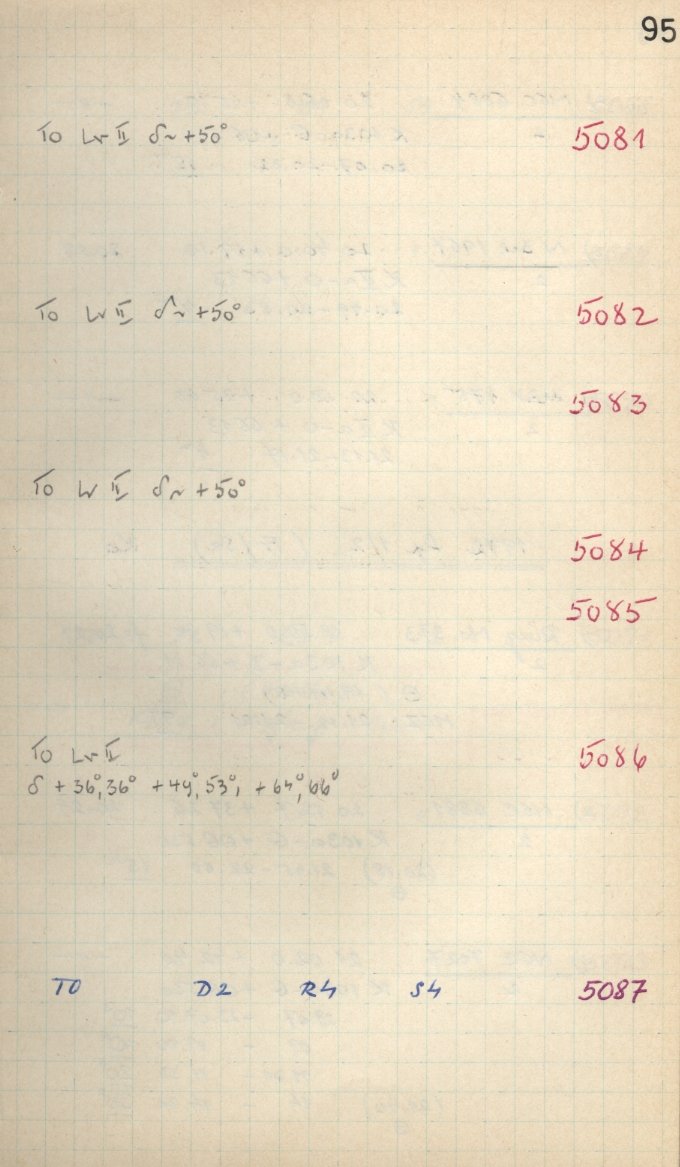 95
TO II δ~ +50° 5081
TO II δ~ +50° 5082
5083
TO II δ~ +50°
5084
5085
TO II 5086
δ +36°,36° +49°,53°, +64°,66°
TO D2 R4 S4 5087